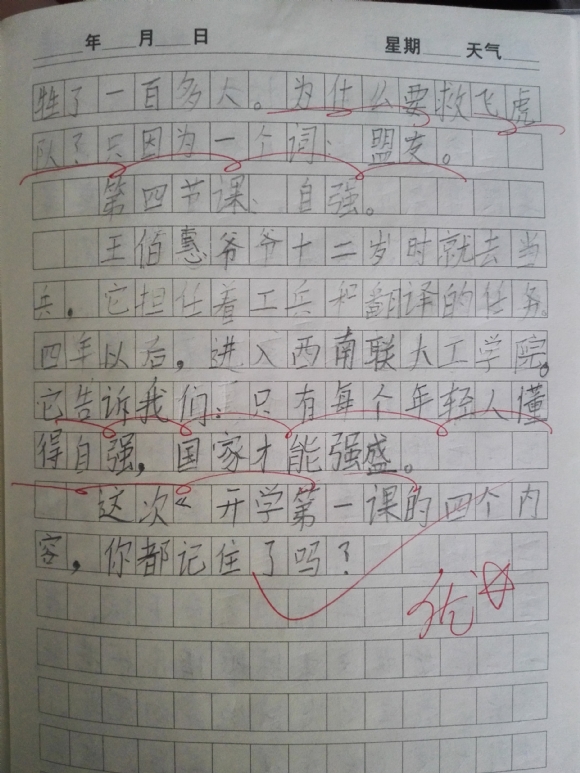 年 月 日 星期 天气
牲了一百多人。为什么要救飞虎
队？只因为一个词：盟友。
第四节课：自强。
王佰惠爷爷十二岁时就去当
兵，它担任着工兵和翻译的任务。
四年以后，进入西南联大工学院。
它告诉我们：只有每个年轻人懂
得自强，国家才能强盛。
这次《开学第一课的四个内
容，你都记住了吗？
优☆